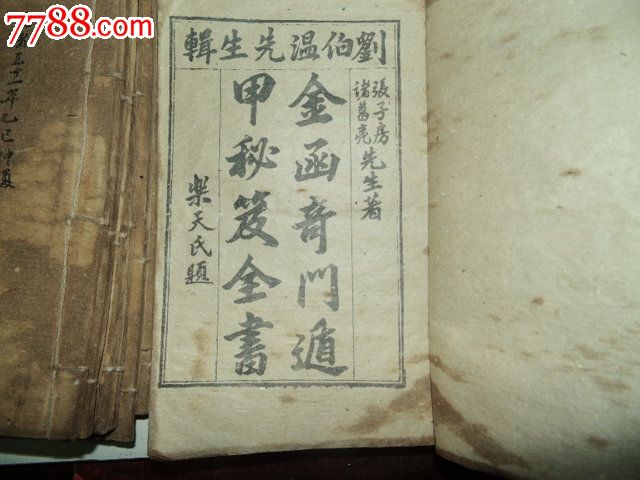 7788.com
劉伯温先生輯
張子房
諸葛亮
先生著
金函奇門遁
甲秘笈全書
樂天氏題
年乙巳仲夏